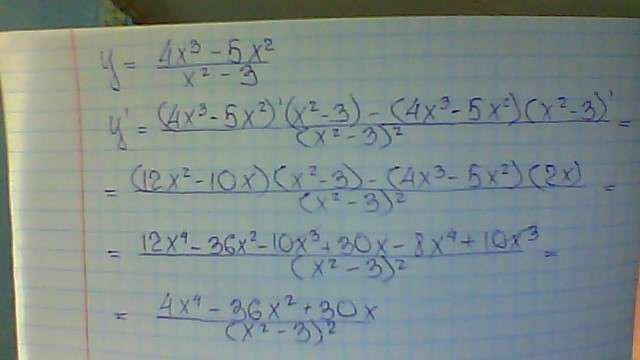 y = (4x³ - 5x²)/(x² - 3)
y' = ((4x³ - 5x²)'(x² - 3) - (4x³ - 5x²)(x² - 3)')/(x² - 3)² =
= ((12x² - 10x)(x² - 3) - (4x³ - 5x²)(2x))/(x² - 3)² =
= (12x⁴ - 36x² - 10x³ + 30x - 8x⁴ + 10x³)/(x² - 3)² =
= (4x⁴ - 36x² + 30x)/(x² - 3)²